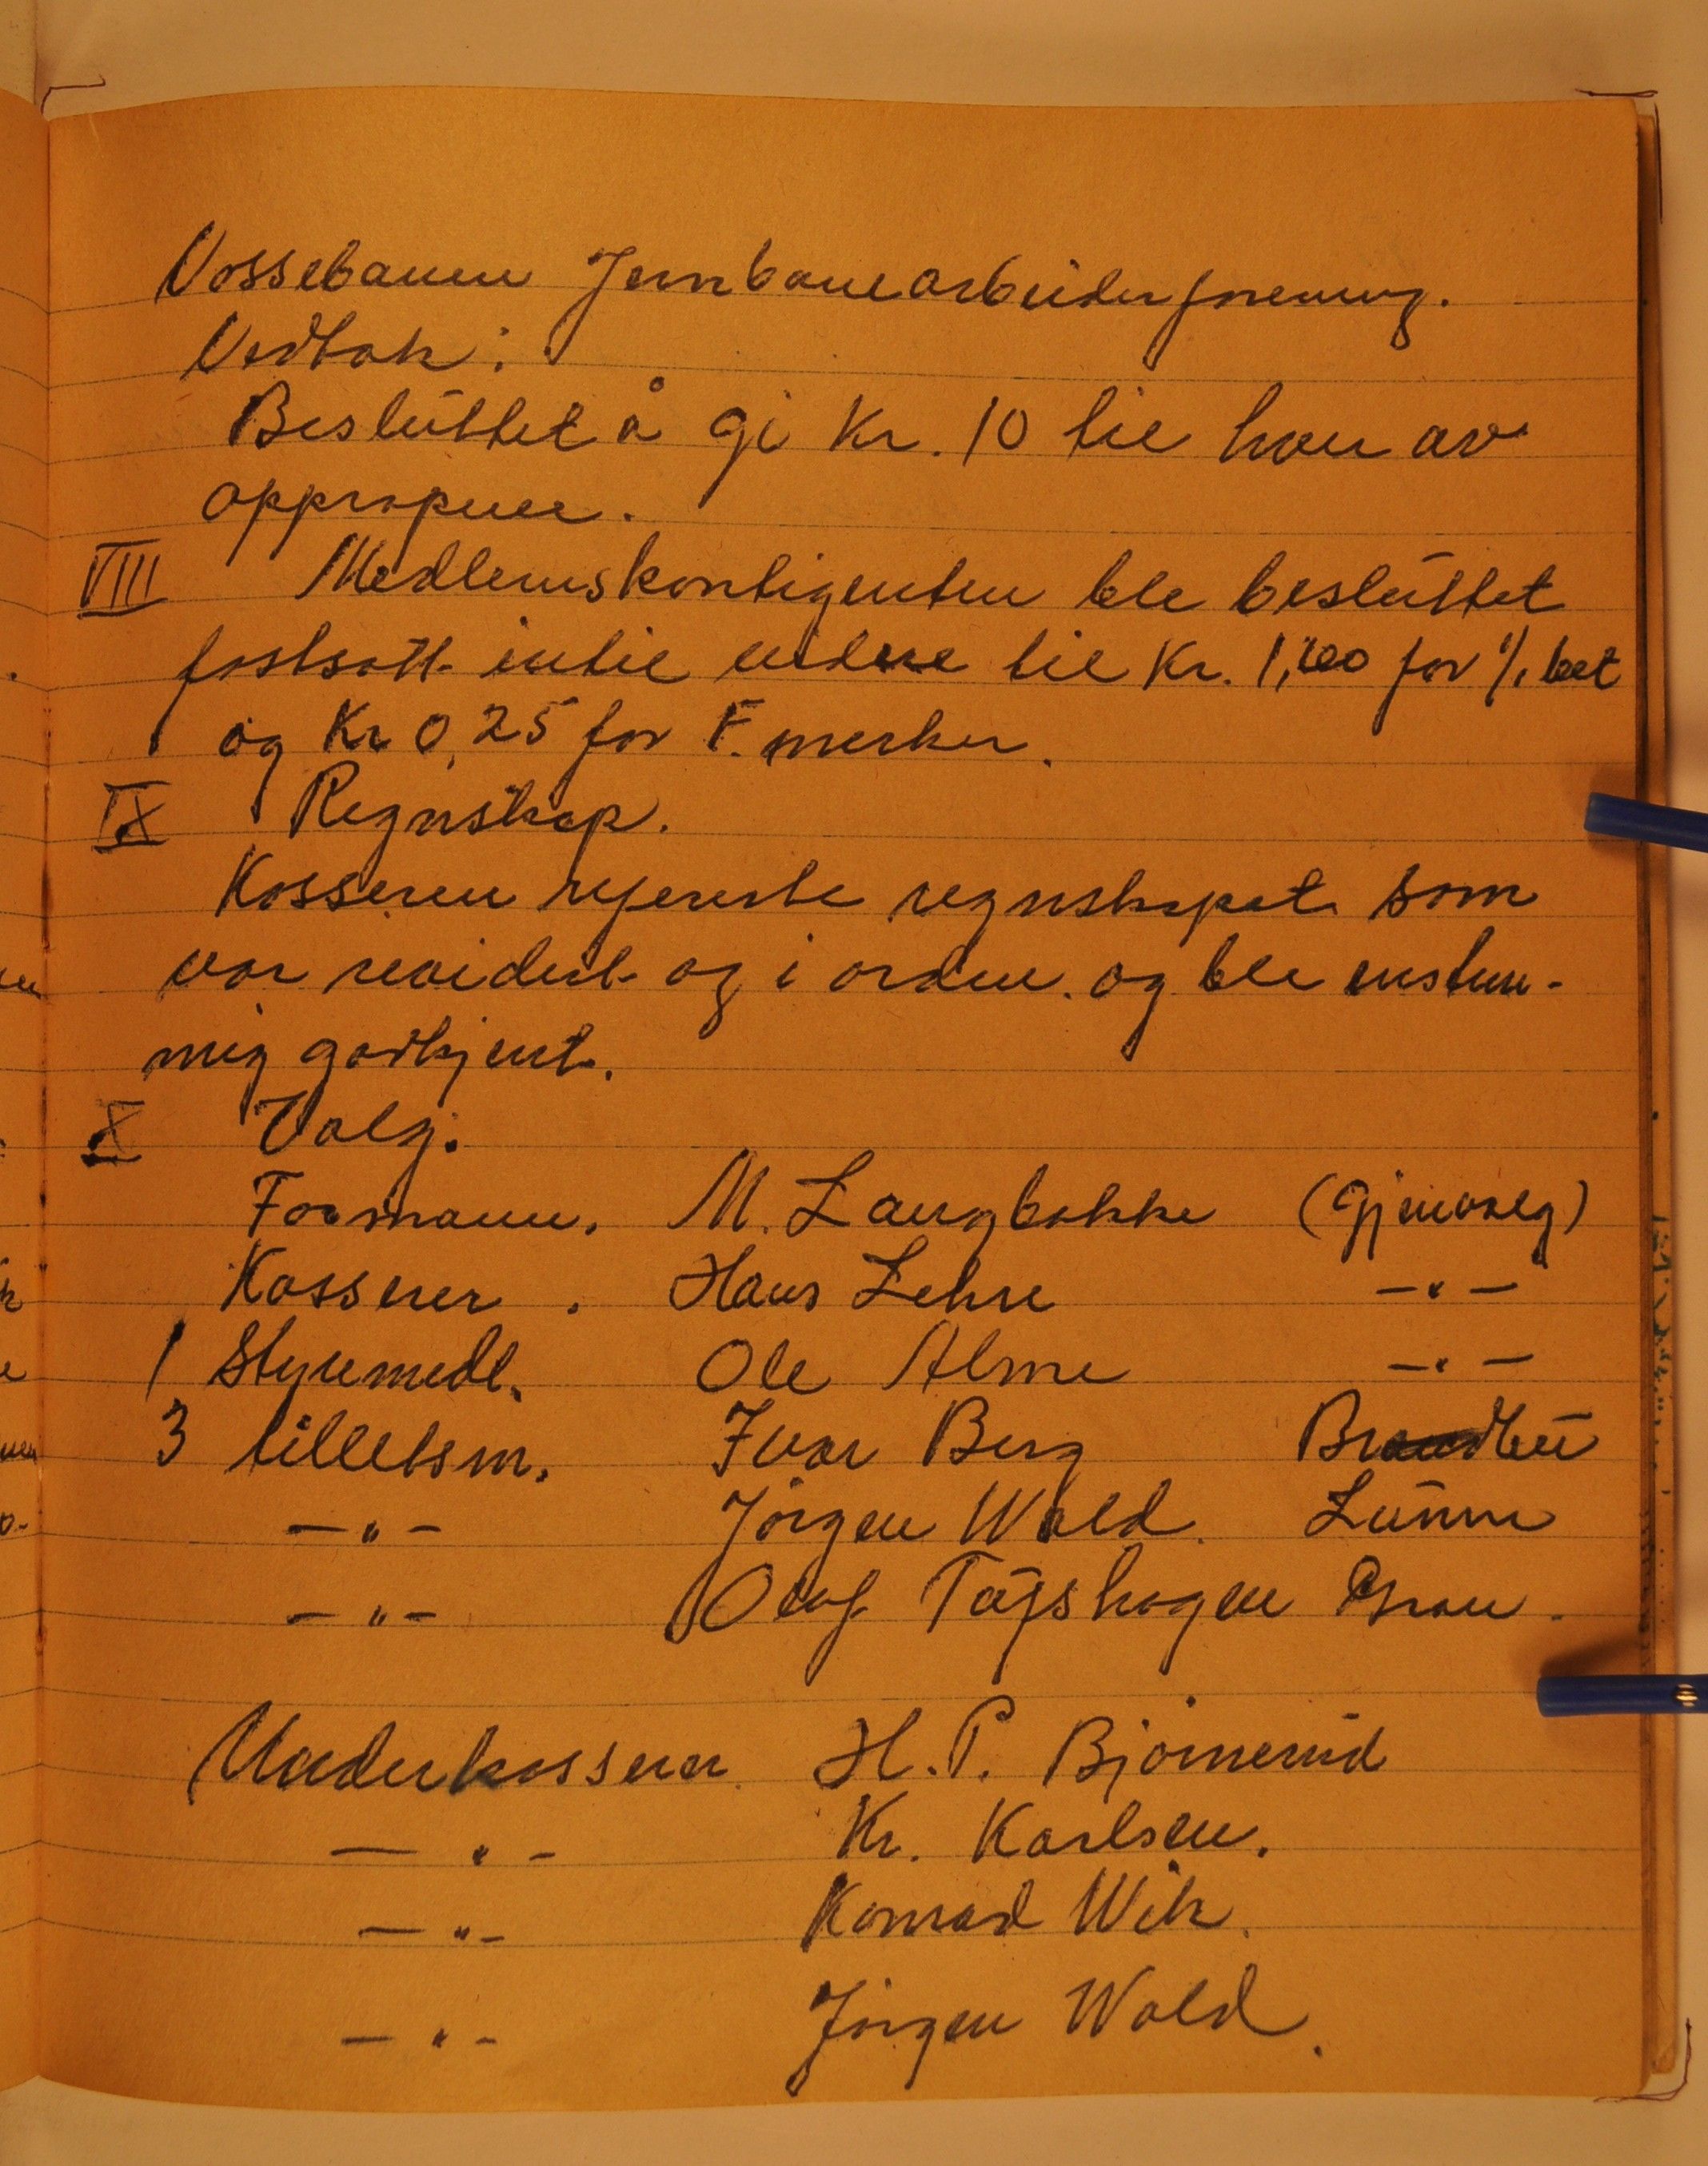 Vossebanen Jernbanearbeiderforening.
Vedtak:
Besluttet å gi Kr. 10 til hver av
oppropene.
VIII Medlemskontigenten ble besluttet
fastsatt intil videre til Kr. 1,00 for 1/1 bet
og Kr 0,25 for F. merker.
IX Regnskap.
Kasseren refererte regnskapet som
var reividert og i orden. og ble enstem-
mig godkjent.
X Valg.
Formann. M. Langbakke (Gjenvalg)
Kasserer. Hans Lehre -"-
1 Styremedl. Ole Alme -"-
3 tilletsm. Ivar Berg Brandbu
-"- Jørgen Wold. Lunner
-"- Olaf Tågshagen Gran.
Underkasserer H. P. Bjørnerud
-"- Kr. Karlsen.
-"- Konrad Wik.
-"- Jørgen Wold.